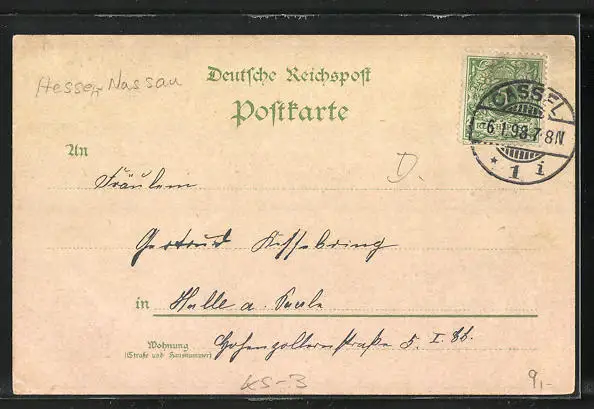 Hessen Nassau
Deutsche Reichspost
Postkarte
CASSEL
6.1.98.7-8N
* 1 i
An
Fräulein
D.
Gertrud Kesselring
in Halle a. Saale
Wohnung
(Straße und Hausnummer)
Hohenzollernstraße 5. I. Et.
KS-B
9,-